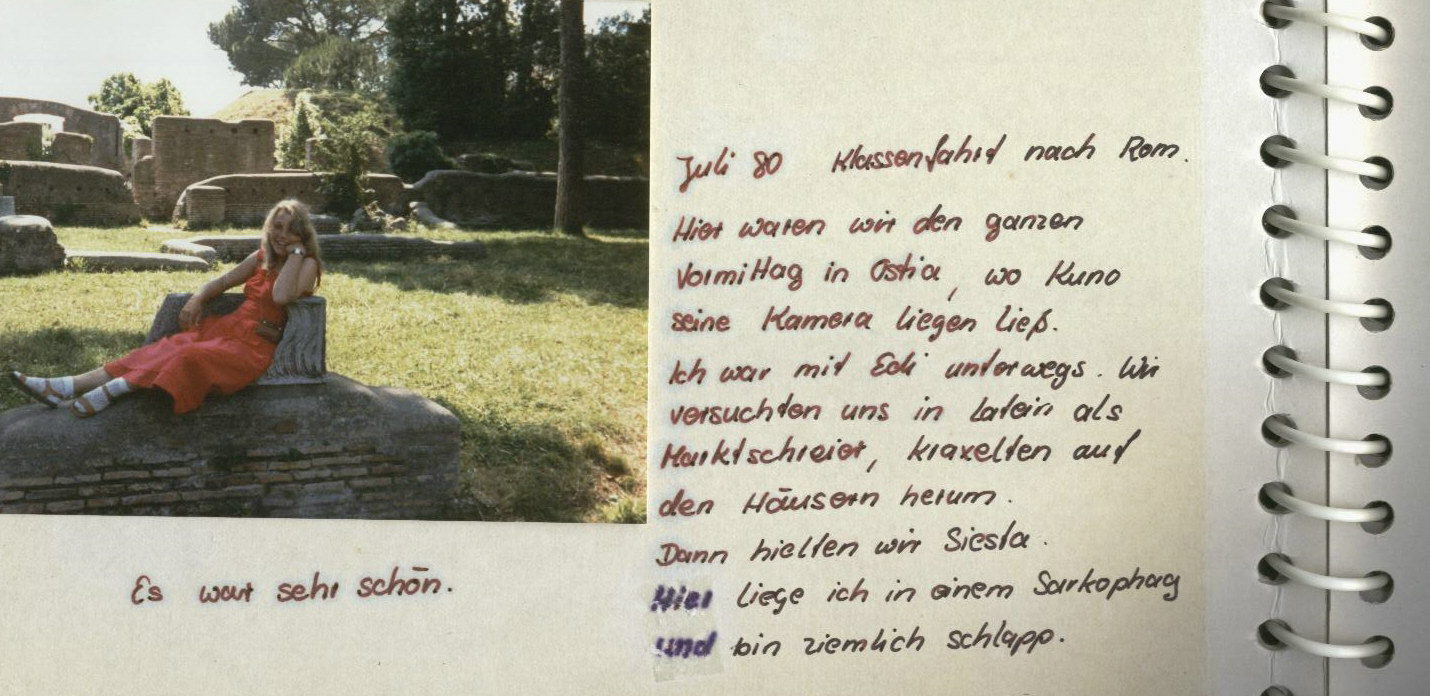 Juli 80 Klassenfahrt nach Rom.
Hier waren wir den ganzen
Vormittag in Ostia, wo Kuno
seine Kamera liegen ließ.
Ich war mit Edi unterwegs. Wir
versuchten uns in Latein als
Marktschreier, kraxelten auf
den Häusern herum.
Dann hielten wir Siesta.
Hier liege ich in einem Sarkophag
und bin ziemlich schlapp.
Es war sehr schön.